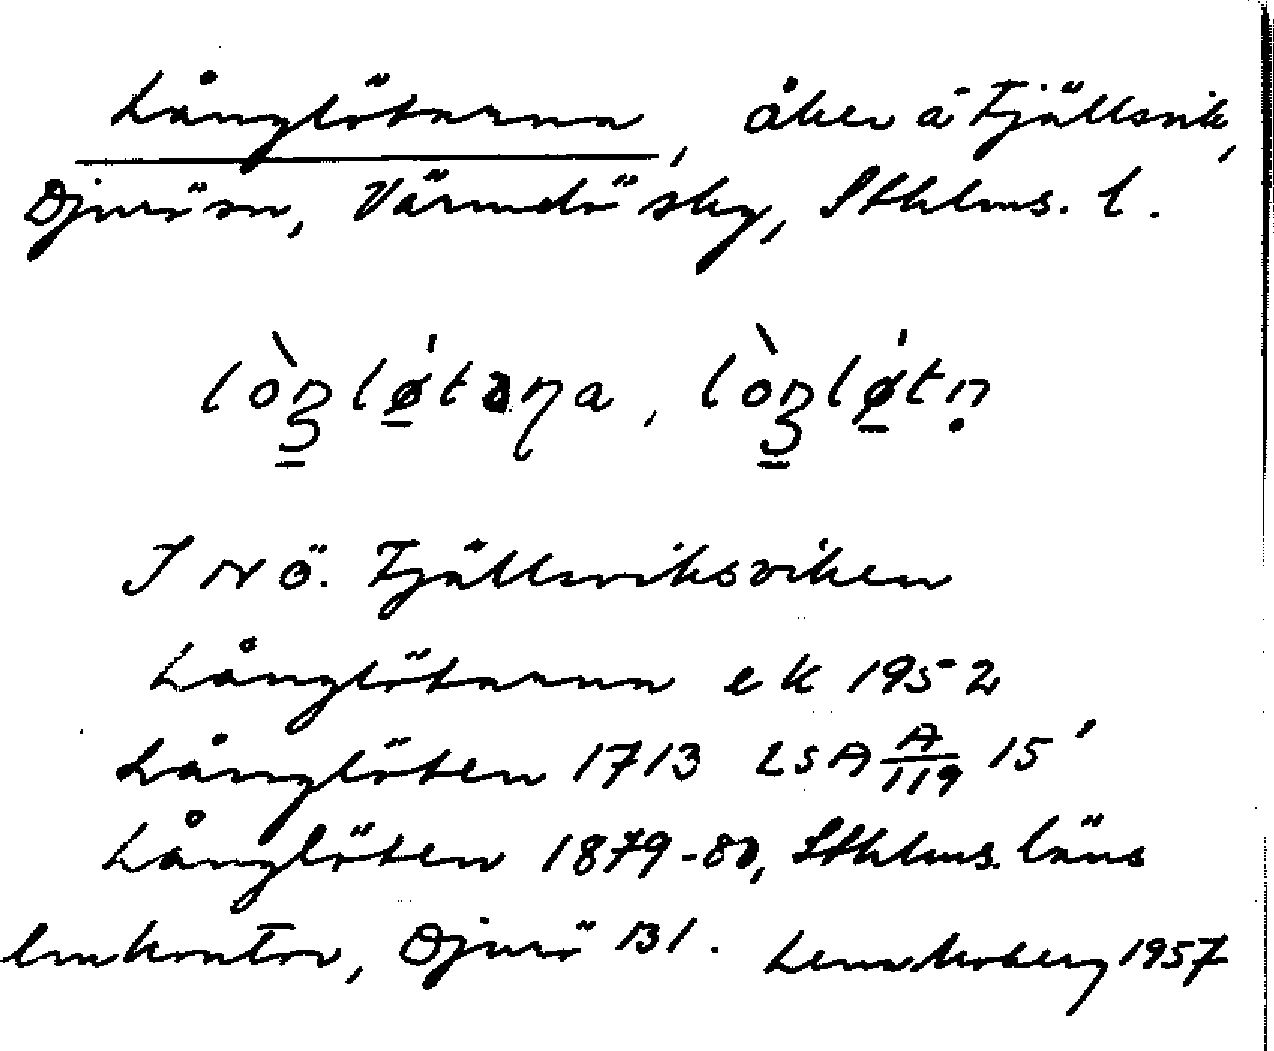 Långlötarna, åker å Fjällsvik,
Djurö sn, Värmdö skg, Sthlms. l.
lòŋlǿ̠taɳa, lòŋlǿ̠tṇ
I NÖ. Fjällsviksviken
Långlötarna ek 1952
Långlöten 1713 LSA A/119 15'
Långlöten 1879-80, Sthlms. läns
lmkontor, Djurö 131. Lena Moberg 1957